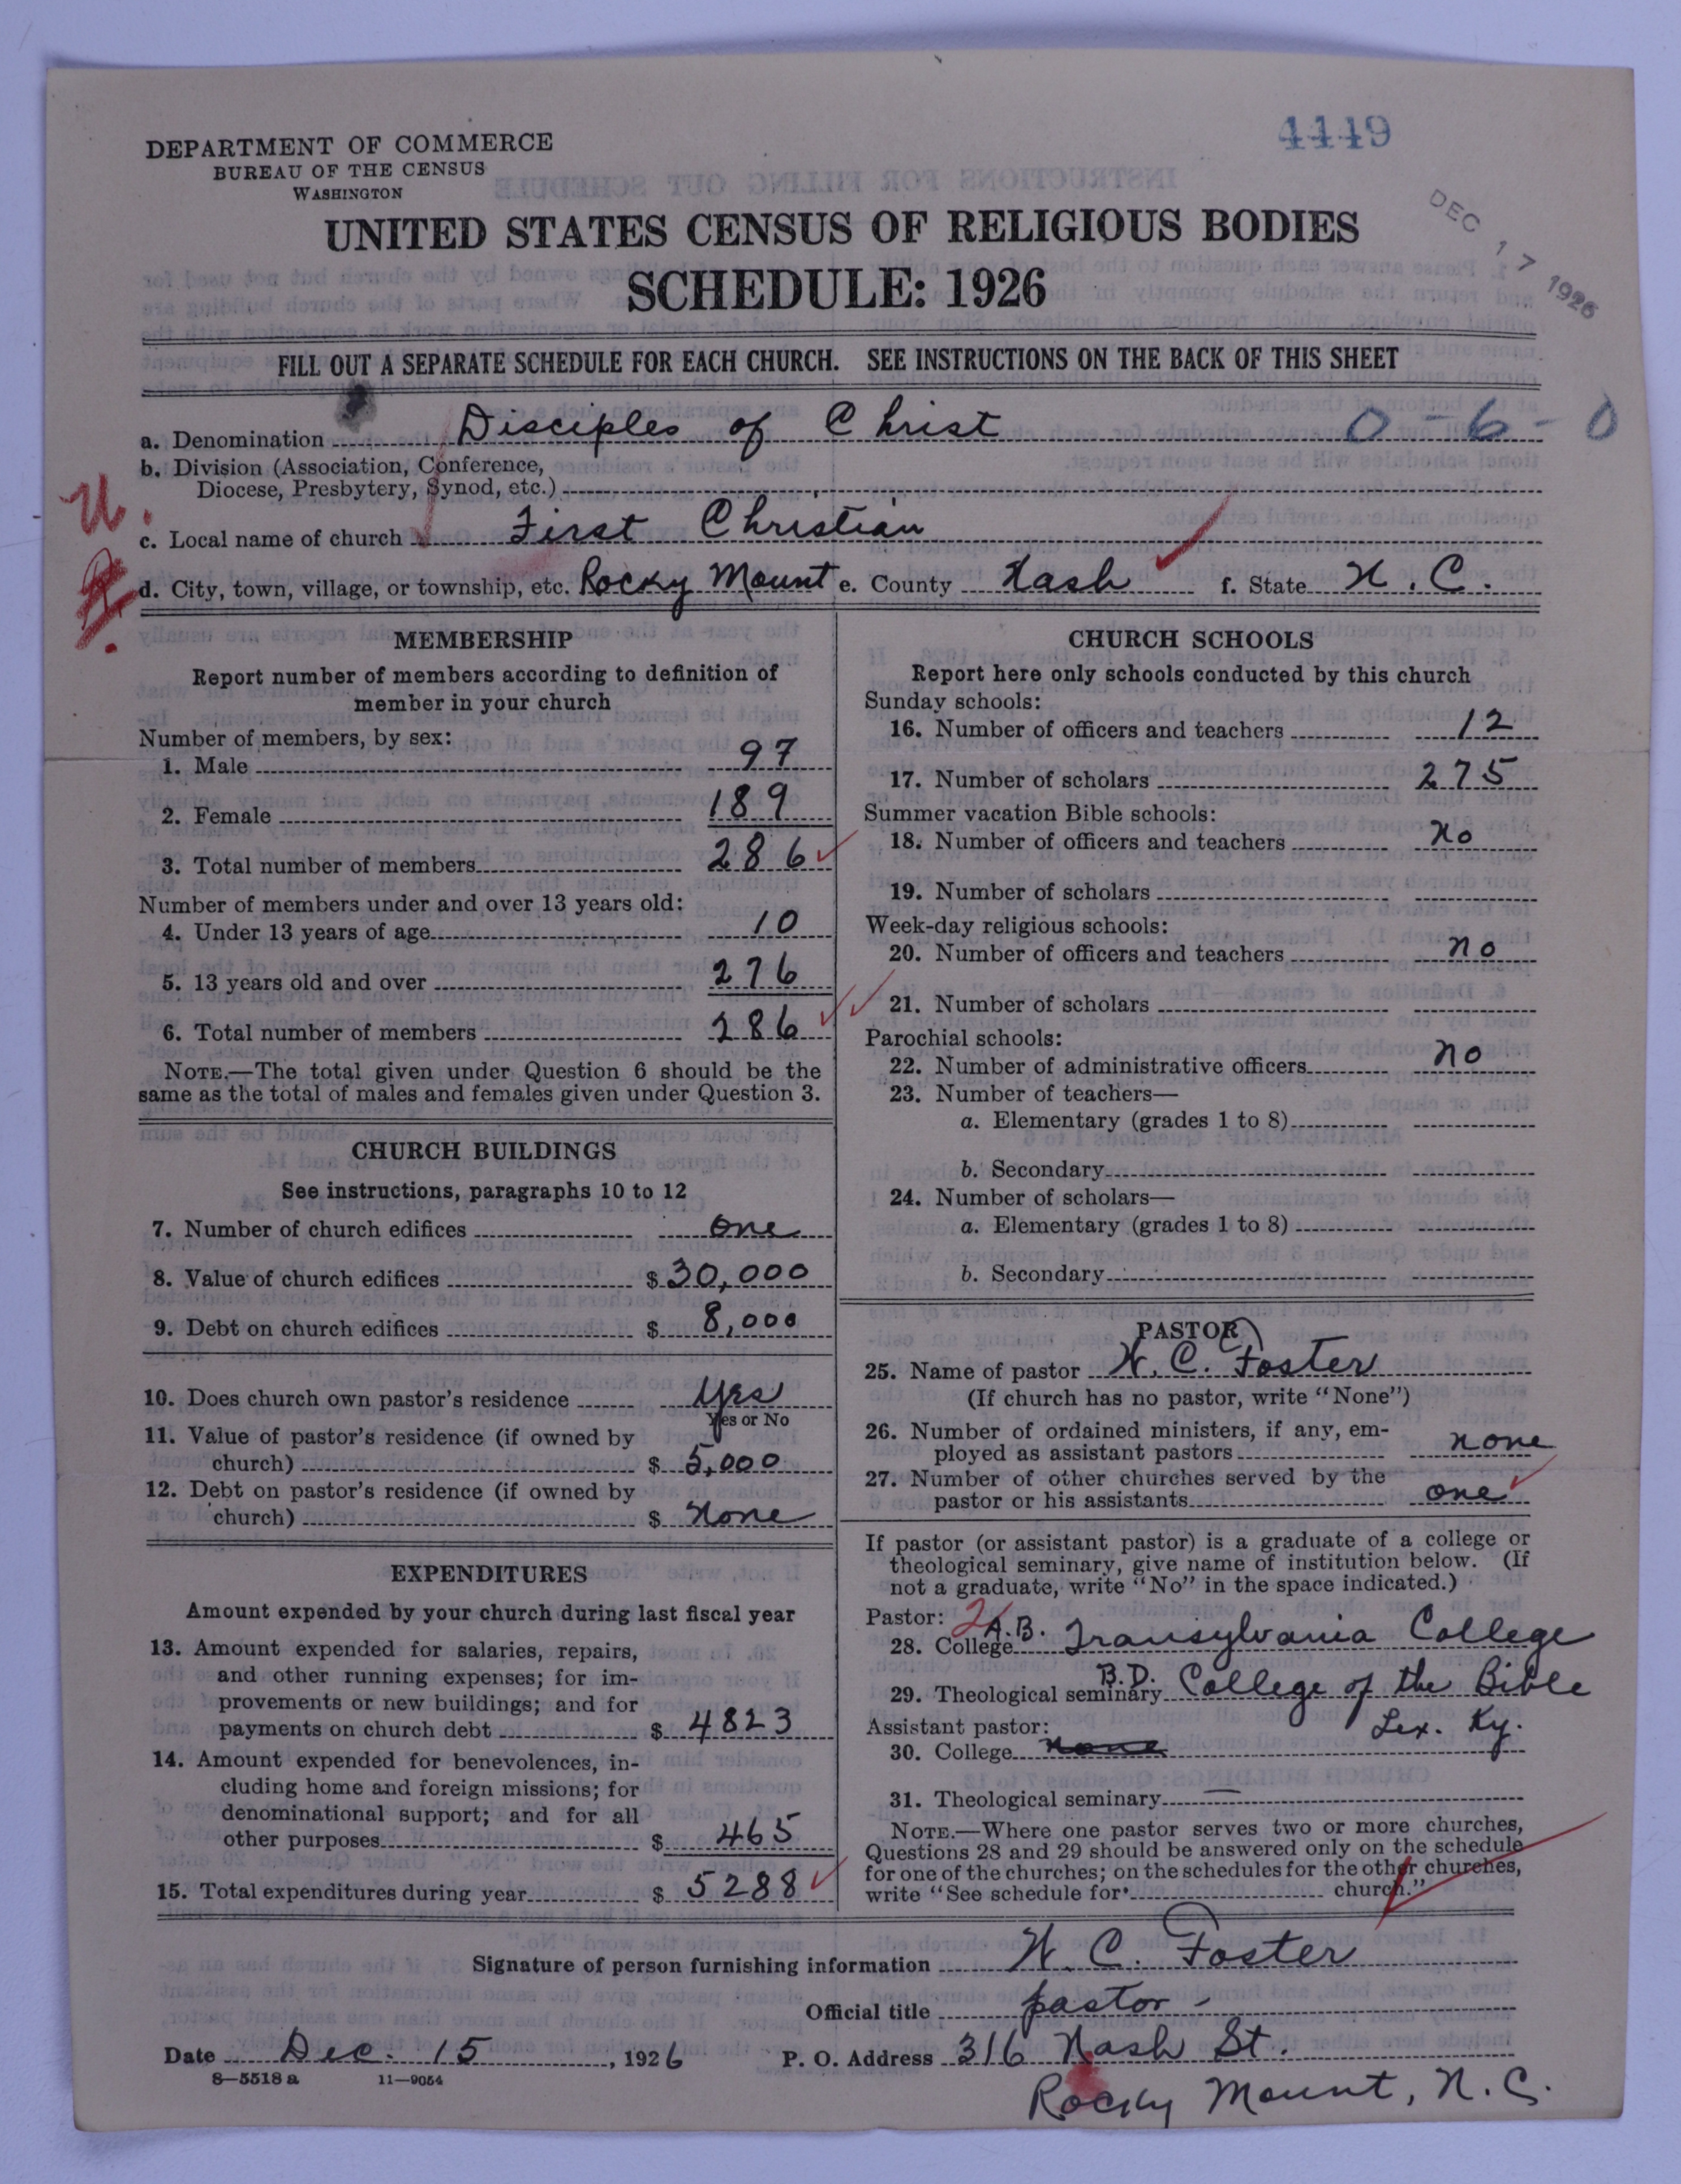 4449
DEPARTMENT OF COMMERCE
BUREAU OF THE CENSUS
WASHINGTON
DEC 17 1926
UNITED STATES CENSUS OF RELIGIOUS BODIES
SCHEDULE: 1926
FILL OUT A SEPARATE SCHEDULE FOR EACH CHURCH. SEE INSTRUCTIONS ON THE BACK OF THIS SHEET
a. Denomination Disciples of Christ 0-6-0
b. Division (Association, Conference,
Diocese, Presbytery, Synod, etc.)
U.
c. Local name of church First Christian
d. City, town, village, or township, etc. Rocky Mount e. County Nash f. State N.C.
MEMBERSHIP
Report number of members according to definition of
member in your church
Number of members, by sex:
1. Male 97
2. Female 189
3. Total number of members 286
Number of members under and over 13 years old:
4. Under 13 years of age 10
5. 13 years old and over 276
6. Total number of members 286
NOTE.—The total given under Question 6 should be the
same as the total of males and females given under Question 3.
CHURCH BUILDINGS
See instructions, paragraphs 10 to 12
7. Number of church edifices one
8. Value of church edifices $ 30,000
9. Debt on church edifices $ 8,000
10. Does church own pastor's residence Yes
Yes or No
11. Value of pastor's residence (if owned by
church) $ 5,000
12. Debt on pastor's residence (if owned by
church) $ None
EXPENDITURES
Amount expended by your church during last fiscal year
13. Amount expended for salaries, repairs,
and other running expenses; for im-
provements or new buildings; and for
payments on church debt $ 4823
14. Amount expended for benevolences, in-
cluding home and foreign missions; for
denominational support; and for all
other purposes $ 465
15. Total expenditures during year $ 5288
CHURCH SCHOOLS
Report here only schools conducted by this church
Sunday schools:
16. Number of officers and teachers 12
17. Number of scholars 275
Summer vacation Bible schools:
18. Number of officers and teachers No
19. Number of scholars
Week-day religious schools:
20. Number of officers and teachers no
21. Number of scholars
Parochial schools:
22. Number of administrative officers no
23. Number of teachers—
a. Elementary (grades 1 to 8)
b. Secondary
24. Number of scholars—
a. Elementary (grades 1 to 8)
b. Secondary
PASTOR
25. Name of pastor W. C. Foster
(If church has no pastor, write "None")
26. Number of ordained ministers, if any, em-
ployed as assistant pastors none
27. Number of other churches served by the
pastor or his assistants one
If pastor (or assistant pastor) is a graduate of a college or
theological seminary, give name of institution below. (If
not a graduate, write "No" in the space indicated.)
Pastor: 2
28. College A.B. Transylvania College
29. Theological seminary B.D. College of the Bible
Assistant pastor: Lex. Ky.
30. College none
31. Theological seminary —
NOTE.—Where one pastor serves two or more churches,
Questions 28 and 29 should be answered only on the schedule
for one of the churches; on the schedules for the other churches,
write "See schedule for church."
Signature of person furnishing information W. C. Foster
Official title pastor -
Date Dec. 15, 1926 P. O. Address 316 Nash St.
8-5518a 11-9054
Rocky Mount, N.C.